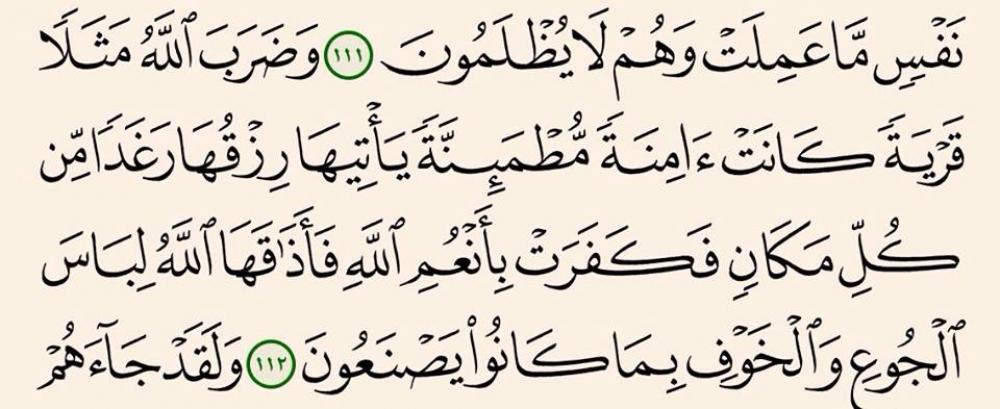 نَفۡسٖ مَّا عَمِلَتۡ وَهُمۡ لَا يُظۡلَمُونَ ١١١ وَضَرَبَ ٱللَّهُ مَثَلٗا
قَرۡيَةٗ كَانَتۡ ءَامِنَةٗ مُّطۡمَئِنَّةٗ يَأۡتِيهَا رِزۡقُهَا رَغَدٗا مِّن
كُلِّ مَكَانٖ فَكَفَرَتۡ بِأَنۡعُمِ ٱللَّهِ فَأَذَٰقَهَا ٱللَّهُ لِبَاسَ
ٱلۡجُوعِ وَٱلۡخَوۡفِ بِمَا كَانُواْ يَصۡنَعُونَ ١١٢ وَلَقَدۡ جَآءَهُمۡ